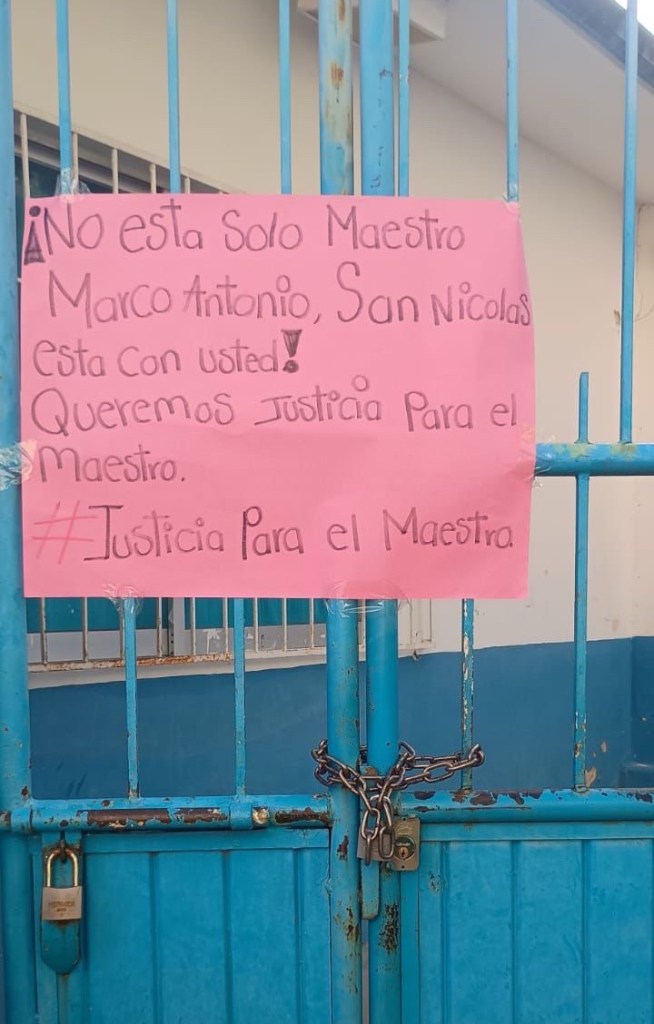 ¡No esta Solo Maestro
Marco Antonio, San Nicolas
esta con usted!
Queremos Justicia Para el
Maestro.
#Justicia Para el Maestra